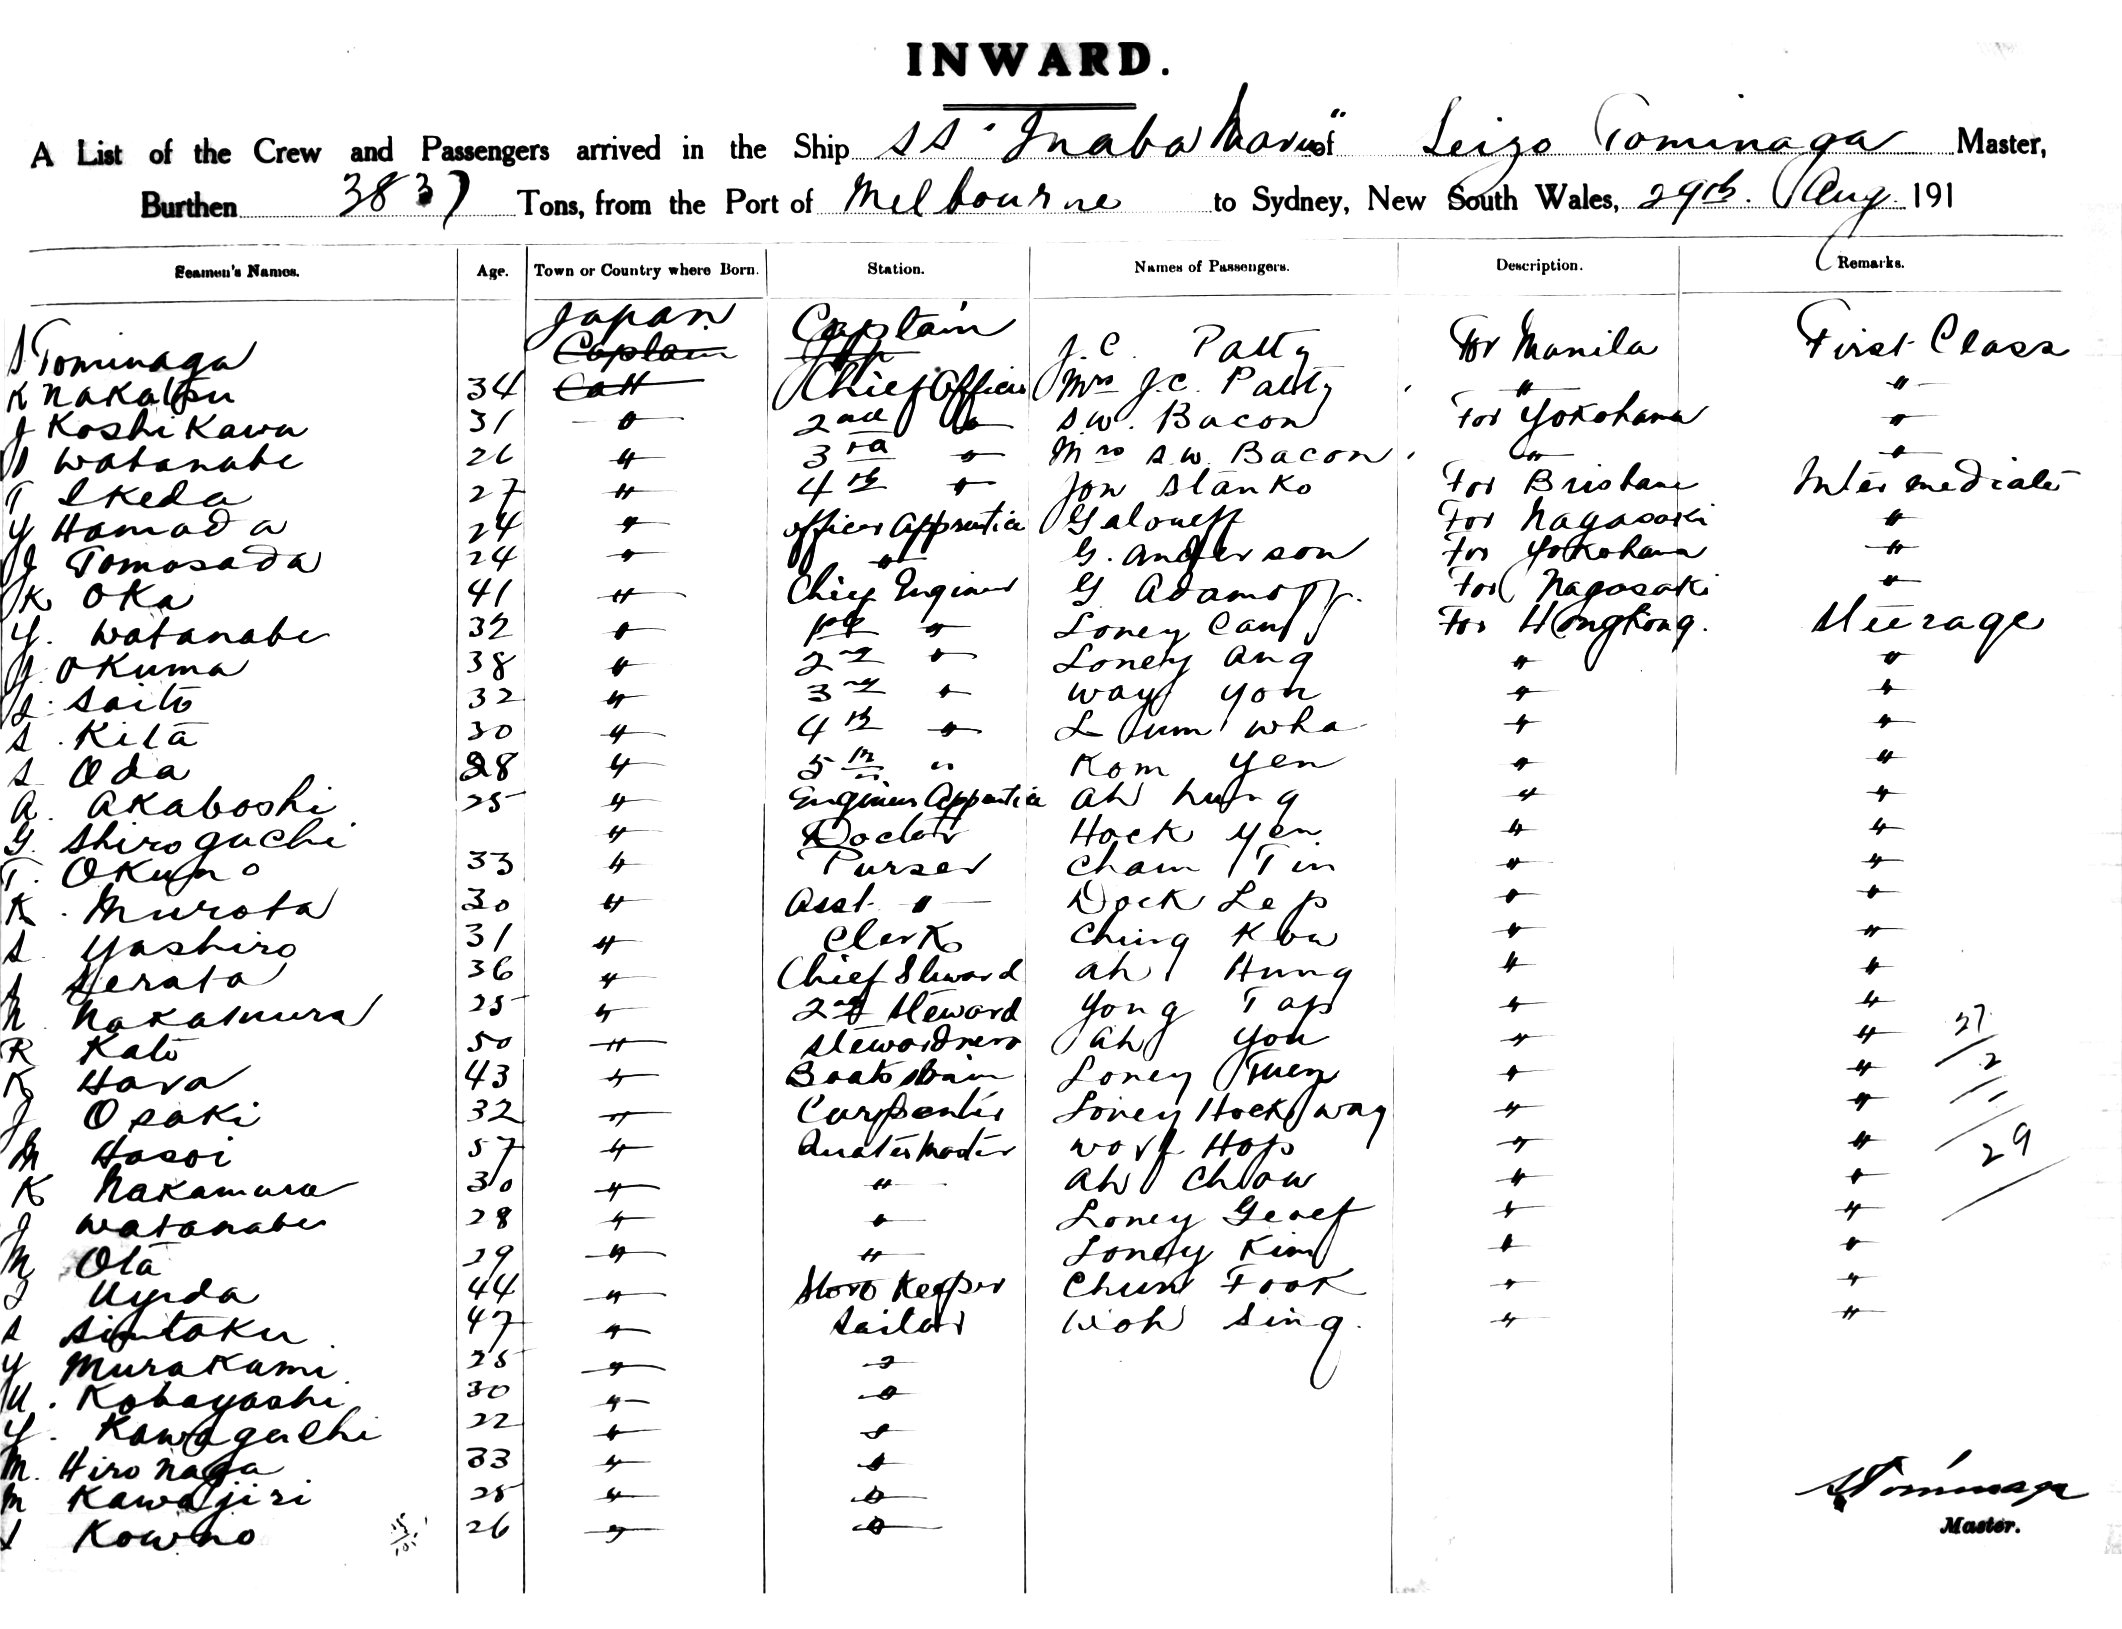 INWARD.
A List of the Crew and Passengers arrived in the Ship SS "Inaba Maru" of Seizo Tominaga Master,
Burthen 3837 Tons, from the Port of Melbourne to Sydney, New South Wales, 29th. Aug. 191
Seamen's Names. Age. Town or Country where Born. Station. Names of Passengers. Description. Remarks.
S Tominaga Japan Captain J.C. Patty For Manila First Class
Captain
K Nakatsu 34 Chief Officer Mrs J.C. Patty " "
J Koshikawa 31 " 2nd " S.W. Bacon For Yokohama "
S Watanabe 26 " 3rd " Mrs S.W. Bacon " "
T Ikeda 27 " 4th " Jon Stanko For Brisbane Intermediate
Y Hamada 24 " Officer Apprentice Galoneff For Nagasaki "
J Tomosada 24 " " G. Anderson For Yokohama "
K Oka 41 " Chief Engineer G Adamoff. For Nagasaki "
Y. Watanabe 32 " 1st " Loney Can For Hongkong. Steerage
J. Okuma 38 " 2nd " Loney Ang " "
S. Saito 32 " 3rd " Way Yon " "
S. Kita 30 " 4th " L Sum Wha " "
S Oda 28 " 5th " Kom Yen " "
A. Akaboshi 25 " Engineer Apprentice Ah Lung " "
G. Shiroguchi " Doctor Hock Yen " "
T. Okuno 33 " Purser Cham Tin " "
K. Murota 30 " Asst. " Dock Lep " "
S. Yashiro 31 " Clerk Ching Kow " "
S Serata 36 " Chief Steward Ah Hung " "
N. Nakamura 25 " 2nd Steward Yong Tap " "
R Kato 50 " Stewardess Ah You " "
K Hara 43 " Boatswain Loney Tuen " "
J Osaki 32 " Carpenter Loney Hock Way " "
M Hosoi 57 " Quater Master Worf Hop " "
K Nakamura 30 " " Ah Chow " "
J Watanabe 28 " " Loney Geoef " "
M Ota 29 " " Loney Kim " "
S Uyeda 44 " Store Keeper Chun Fook " "
S Sintoku 47 " Sailor Woh Sing. " "
Y Murakami. 25 " "
U. Kobayashi 30 " "
Y. Kawaguchi 22 " "
M. Hironaga 33 " "
M Kawajiri 25 " "
S Kowno 26 " "
27
2
29
S Tominaga
Master.